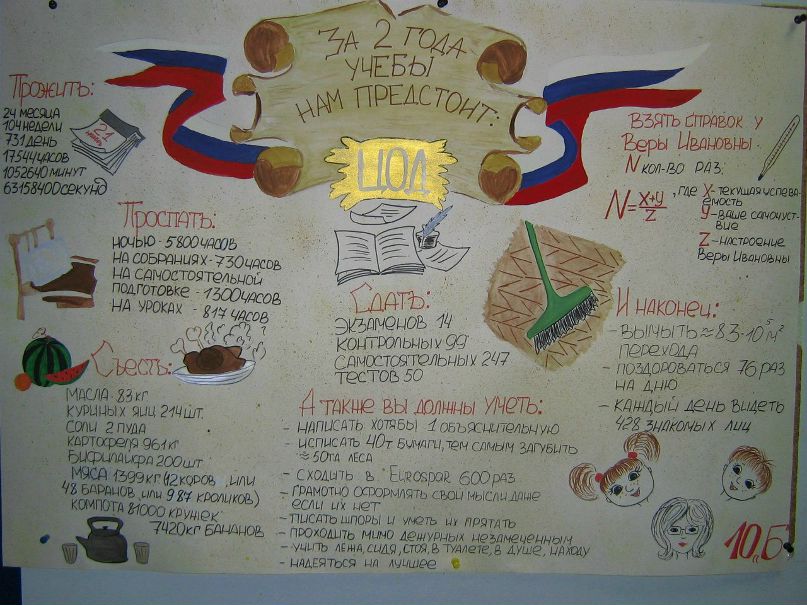 За 2 года
учебы
нам предстоит:
ЦОД
Прожить:
24 месяца
104 недели
731 день
17544 часов
1052640 минут
63158400 секунд
24
Проспать:
ночью - 5800 часов
на собраниях - 730 часов
на самостоятельной
подготовке - 1300 часов
на уроках - 817 часов
Съесть:
масла - 83 кг
куриных яиц 214 шт.
соли 2 пуда
картофеля 961 кг
бифилайфа 200 шт
мяса 1399 кг (12 коров, или
48 баранов, или 987 кроликов)
компота 81000 кружек
7420 кг бананов
Сдать:
экзаменов 14
контрольных 99
самостоятельных 247
тестов 50
А также вы должны учеть:
- написать хотябы 1 объяснительную
- исписать 40т бумаги, тем самым загубить
≈ 50га леса
- сходить в Eurospar 600 раз
- грамотно оформлять свои мысли даже
если их нет
- писать шпоры и уметь их прятать
- проходить мимо дежурных незамеченным
- учить лежа, сидя, стоя, в туалете, в душе, на ходу
- надеяться на лучшее
Взять справок у
Веры Ивановны
N кол-во раз:
N = X+Y/Z , где X - текущая успева-
емость
Y - ваше самочувст-
вие
Z - настроение
Веры Ивановны
И наконец:
- вымыть ≈ 83·10⁵ м²
перехода
- поздороваться 76 раз
на дню
- каждый день видеть
428 знакомых лиц
10„Б"